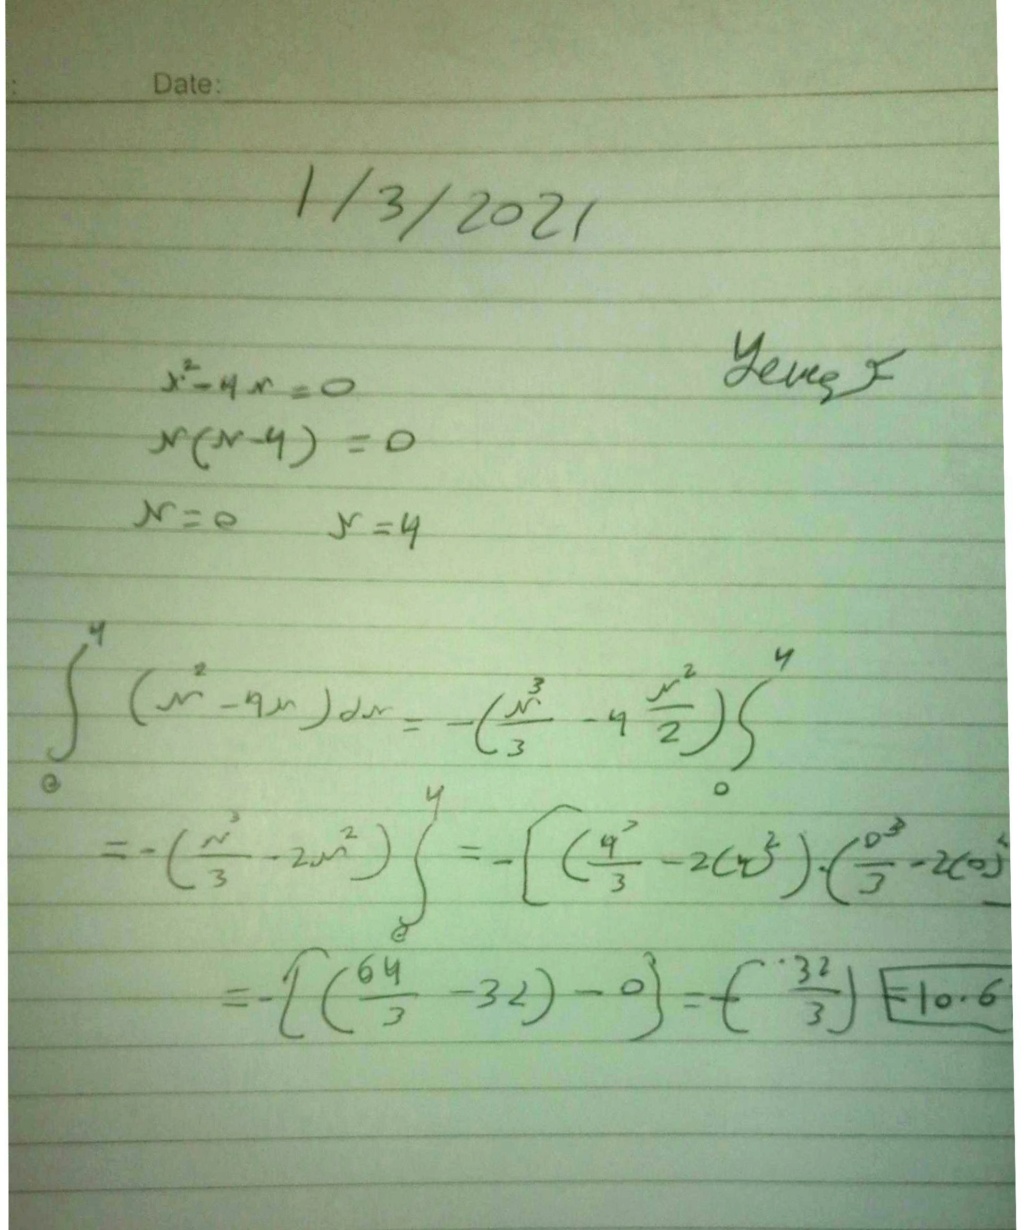 Date:
1/3/2021
x²-4x=0
x(x-4) = 0
x=0 x=4
∫₀⁴ (x²-4x)dx = -(x³/3 - 4 x²/2)∫₀⁴
= -(x³/3 - 2x²)∫₀⁴ = -[(4³/3 - 2(4)²) - (0³/3 - 2(0)²
= -[(64/3 - 32) - 0] = -(-32/3) =10.6